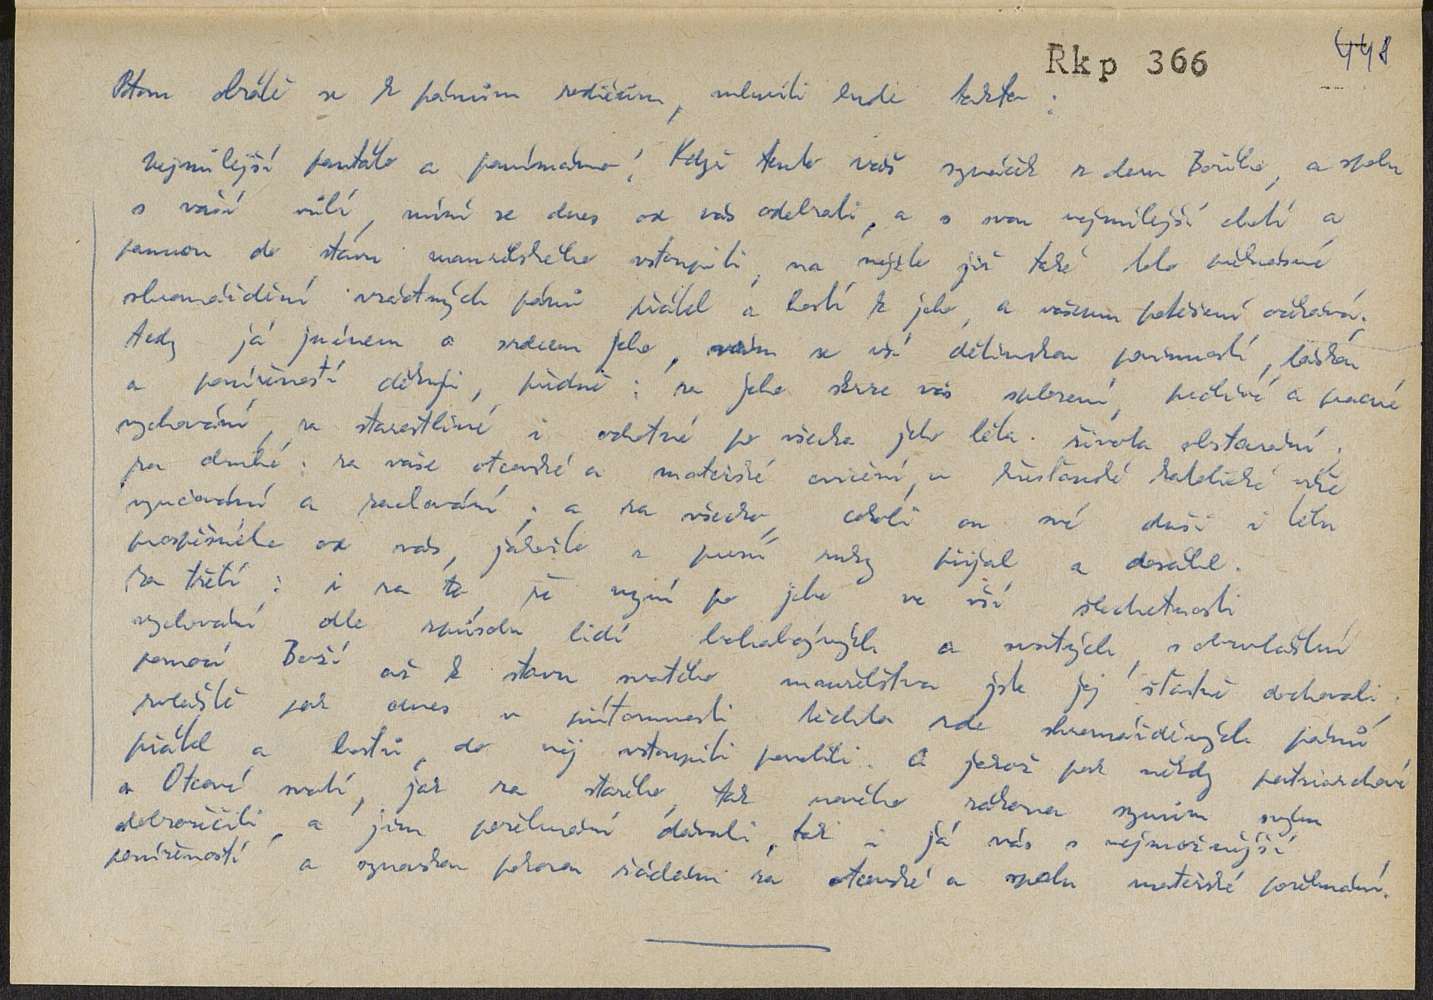 Rkp 366
448
Potom obrátě se k pánům rodičům, mluviti bude takto:
Nejmilejší pantáto a panímámo! Když tento váš synáček z daru Božího, a spolu
s vaší vůlí, míní se dnes od vás odebrati, a s svou nejmilejší chotí a
pannou do stavu manželského vstoupiti, na nějžto již také toto přítomné
shromáždění vzáctných pánů přátel a hostí k jeho, a vašemu potěšení očekává;
tedy já jménem a srdcem jeho, vám se vší dětinskou povinností, láskou
a poníženosti děkuji, předně: za jeho skrze vás splození, pečlivé a pracné
vychování, za starostlivé i ochotné po všecka jeho léta života obstarání;
za druhé: za vaše otcovské a mateřské cvičení, u křesťanské katolické víře
vyučování a zachování; a za všecko, cokoli on své duši i tělu
prospěšného od vás, jakožto z první ruky přijal a dosáhl.
Za třetí: i za to že nyní po jeho ve vší šlechetnosti
vychování dle způsobu lidí bohabojných a svatých, s obzvláštní
pomocí Boží až k stavu svatého manželstva jste jej šťastně dochovali;
zvláště pak dnes v přítomnosti těchto zde shromážděných pánů
přátel a hostů, do něj vstoupiti povolili. A jakož pak někdy patriarchové
a Otcové svatí, jak za starého, tak nového zákona synům svým
dobrořečili, a jim požehnání dávali, tak i já vás s nejmožnější
poníženosti a synovskou pokorou žádám za otcovské a spolu mateřské požehnání.